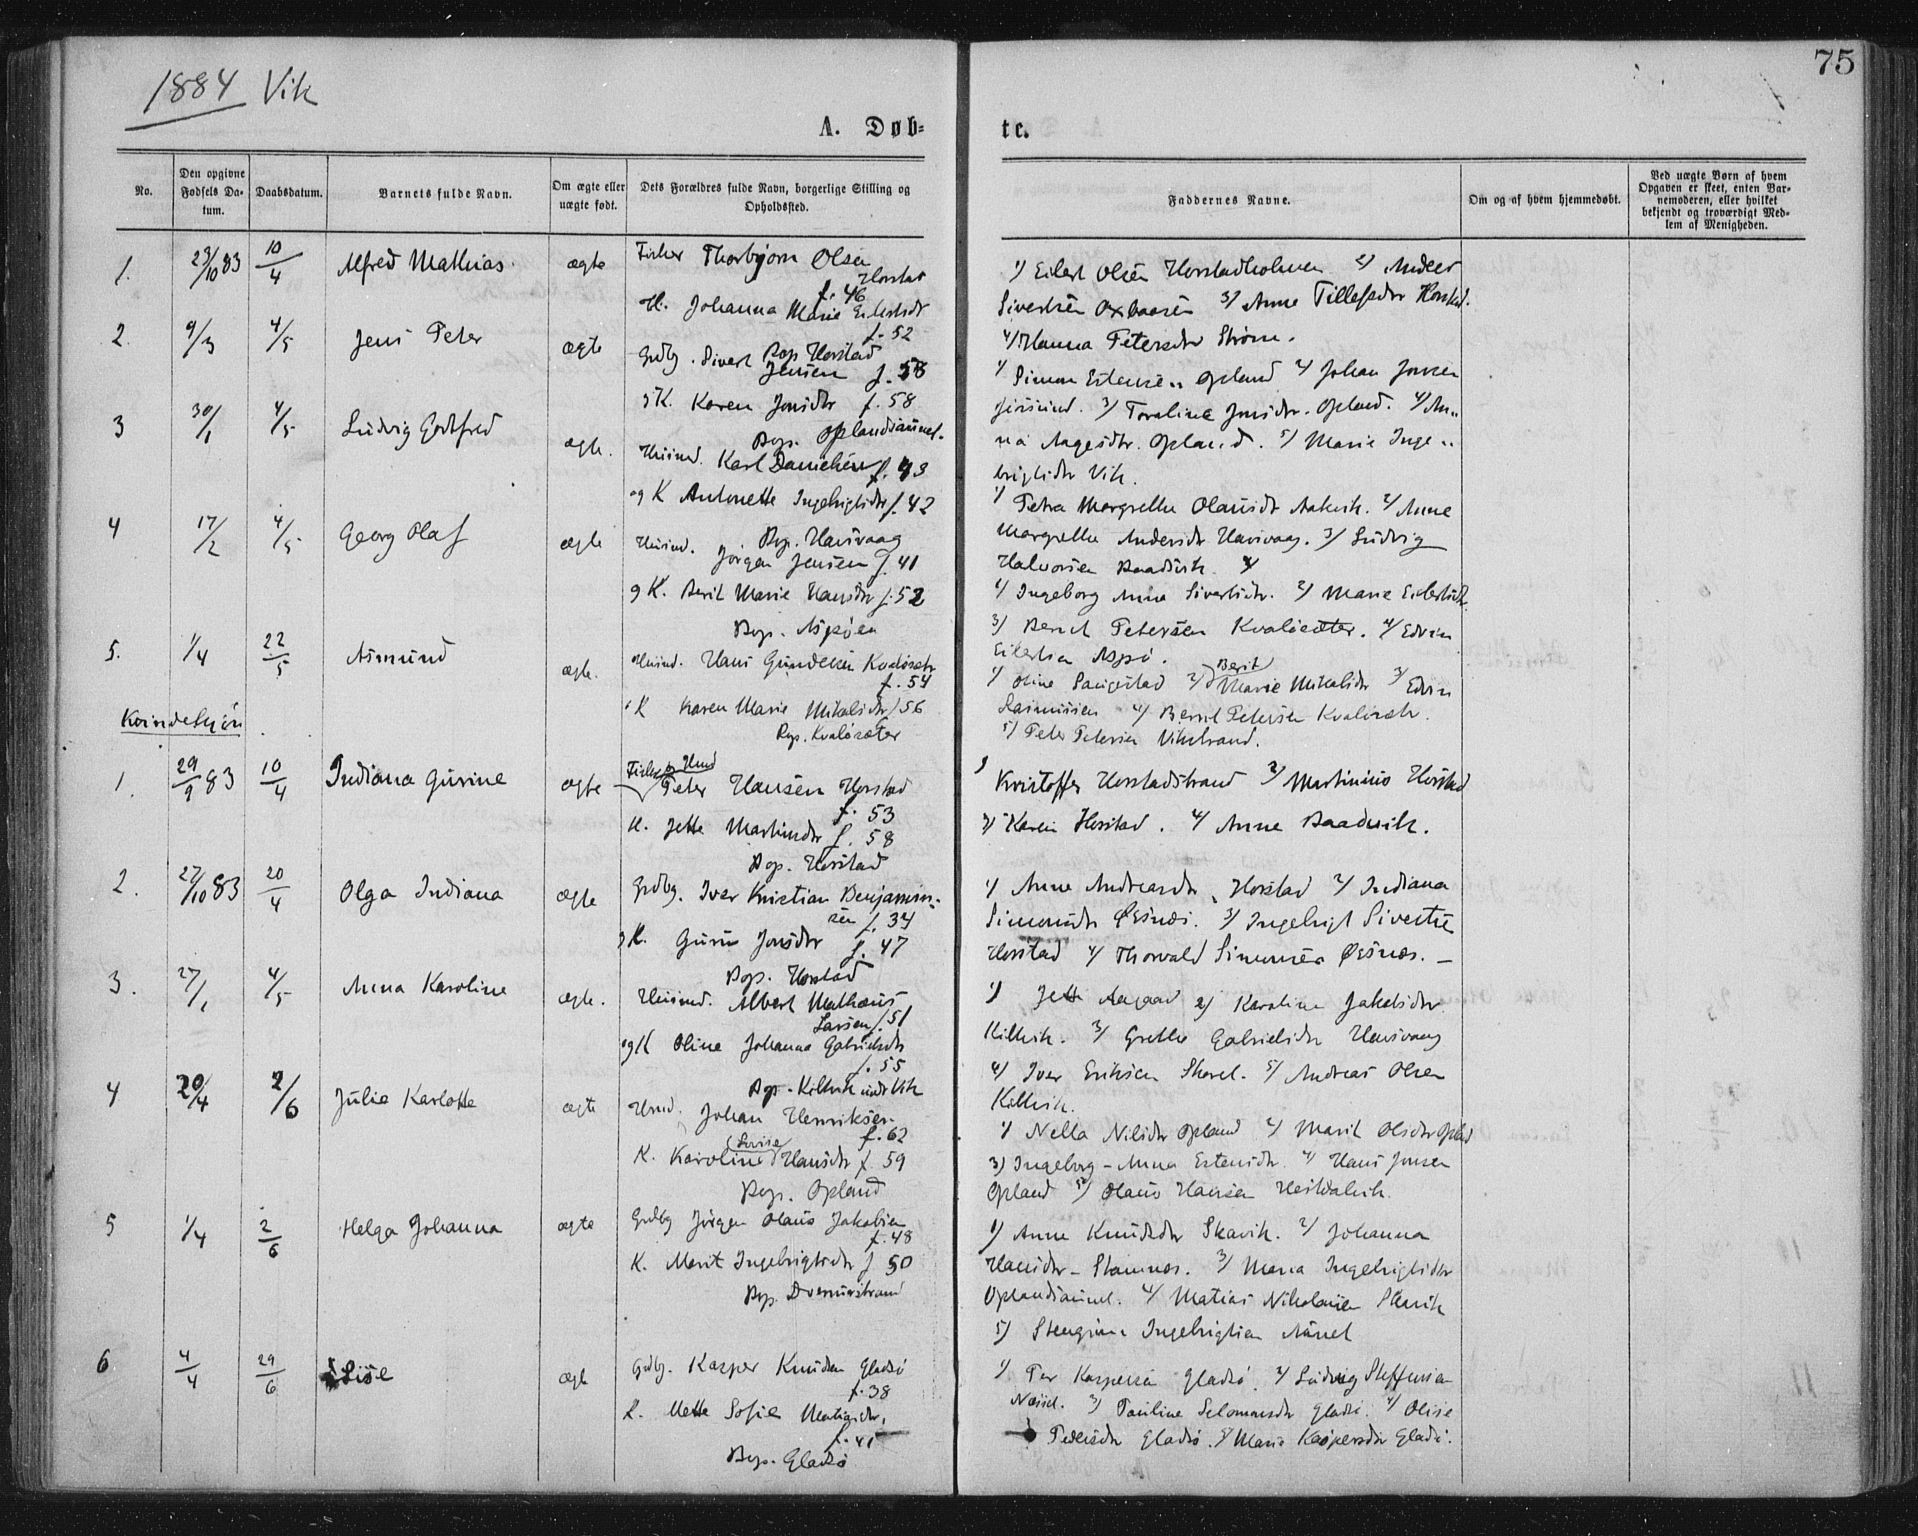 75
1884 Vik
A. Døb-
te.
No.
Den opgivne Fødsels Da-
tum.
Daabsdatum.
Barnets fulde Navn.
Om ægte eller
uægte født.
Dets Forældres fulde Navn, borgerlige Stilling og
Opholdssted.
Faddernes Navne.
Om og af hvem hjemmedøbt.
Ved uægte Børn af hvem
Opgaven er skeet, enten Bar-
nemoderen, eller hvilket
bekjendt og troværdigt Med-
lem af Menigheden.
1. 23/10 83 10/4 Alfred Mathias ægte Fisker Thorbjørn Olsen
Horstad
f. 46
K. Johanna Marie Eilertsdtr
f. 52
Bop Horstad
1) Eilert Olsen Horstadholmen 2) Anders
Sivertsen Oxbaasen 3) Anne Tillefsdtr Horstad.
4) Hanna Petersdtr Strøm.
2. 9/3 4/5 Jens Peter ægte Grdbg. Sivert
Jensen f. 58
gK. Karen Jonsdtr f. 58
Bop. Oplandsaunet.
1) Simon Estensen Opland 2) Johan Jonsen
3) Toraline Jonsdtr. Opland. 4) An-
na Aagesdtr. Opland. 5) Marie Inge-
brigtsdtr Vik.
3 30/1 4/5 Ludvig Godtfred ægte. Huusmd. Karl Danielsen f. 43
og K Antonette Ingebrigtsdtr f. 42
Bop. Hansvaag
1) Petra Margrethe Olausdtr Aakvik. 2) Anne
Margrethe Andersdtr Hansvaag. 3) Ludvig
Halvorsen Baadsvik. 4)
4 17/2 4/5 Georg Olaf ægte Huusmd. Jørgen Jensen f. 41
gK. Berit Marie Hansdtr f. 52
Bop. Aspøen
1) Ingeborg Anne Sivertsdtr. 2) Marie Eilertsdtr.
3) Bernt Petersen Kvaløsæter. 4) Edvin
Eilertsen Aspø.
5. 1/4 22/5 Asmund ægte. Huusmd. Hans Gundersen Kvaløsætr
f. 54
K Karen Marie Mikalsdtr f 56
Bop. Kvaløsæter
1) Oline Saugestad 2) Berit Marie Mikalsdtr 3) Edvin
Rasmussen 4) Bernt Petersen Kvaløsætr.
5) Peter Petersen Vikstrand.
Kvindekjøn
1. 29/9 83 10/4 Indiana Gurine ægte Fisker og Hmd
Peter Hansen Horstad
f. 53
K. Jette Martinsdtr f. 58
Bop. Horstad
1) Kristoffer Horstadstrand 2) Martinius Horstad
3) Karen Horstad. 4) Anne Baadsvik.
2. 27/10 83 20/4 Olga Indiana ægte Grdbg. Iver Kristian Benjamin-
sen f. 34
gK. Gurine Jonsdtr f. 47
Bop. Horstad
1) Anne Andreasdtr Horstad 2) Indiana
Simonsdtr Øesnæs. 3) Ingebrigt Sivertsen
Horstad 4) Thorvald Simonsen Øesnæs. –
3. 27/1 4/5 Anna Karoline ægte. Huusmd. Albert Mathæus
Larsen f. 51
og K Oline Johanna Gabrielsdtr
f. 55
Bop. Kilvik under Vik
1) Jette Aagaard 2) Karoline Jakobsdtr
Kilvik. 3) Grethe Gabrielsdtr Hansvaag
4) Iver Eriksen 5) Andreas Olsen
Kilvik.
4 20/4 2/6 Julie Karlotte ægte Hmd. Johan Henriksen
f. 62
K. Karoline Lovise Hansdtr f. 59
Bop. Opland
1) Nella Nilsdtr Opland 2) Marit Olsdtr Opland
3) Ingeborg-Anna Estensdtr. 4) Hans Jonsen
Opland 5) Olaus Hansen
5 1/4 2/6 Helga Johanna ægte Grdbg Jørgen Olaus Jakobsen
f. 48
K. Marit Ingebrigtsdtr f 50
Bop.
1) Anne Knudsdtr Skavik. 2) Johanna
Hansdtr - Stamnes. 3) Maria Ingebrigtsdtr
Oplandsaunet. 4) Matias Nikolaisen Skavik
5) Ingebrigtsen Aunet
6 4/4 29/6 Lise ægte Grdbg. Kasper Knudsen Gladsø
f. 38
K. Mette Sofie Matiasdtr.
f. 41
Bop. Gladsø
1) Per Kaspersen Gladsø. 2) Ludvig Steffensen
3) Pauline Salomonsdtr Gladsø. 4) Olise
Pedersdtr Gladsø. 5) Marie Kaspersdtr Gladsø.